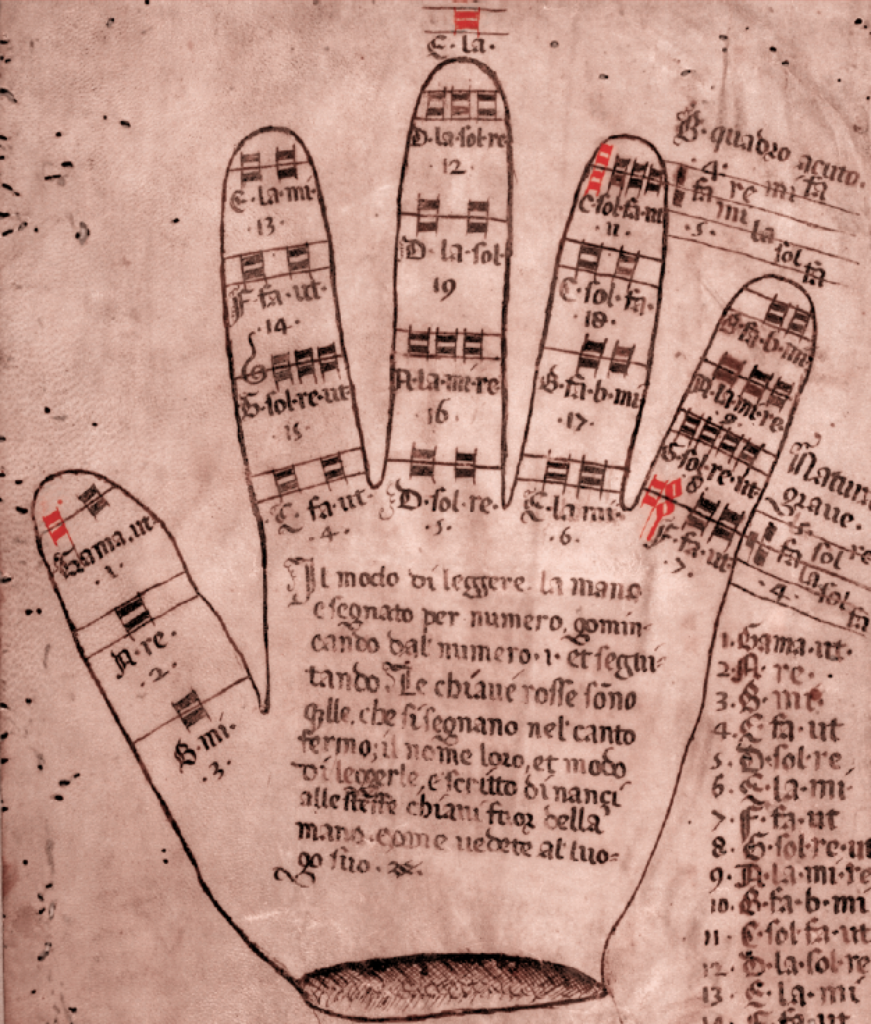 E·la·
D·la·sol·re
12
E·la·mi
·13·
D·la·sol·
19
F·fa·ut·
·14·
G·sol·re·ut
15
A·la·mi·re
16
C·fa·ut·
·4·
D·sol·re·
·5·
C·sol·fa·ut
·11·
C·sol·fa·
·18·
B·fa·b·mi
·17·
E·la·mi·
·6·
B·quadro acuto·
·4·
fa re mi fa
fa mi la
·5·
sol fa
B·fa·b·mi
A·la·mi·re
9
G·sol·re·ut
8
F·fa·ut
·7·
Natura
grave·
fa sol re
fa la sol
·4·
fa
Gama·ut
·1·
A·re·
·2·
B·mi·
·3·
Il modo di leggere la mano
e segnato per numero, gomin-
cando dal numero·1· et segui-
tando· Le chiave rosse sono
qlle, che si segnano nel canto
fermo; il nome loro, et modo
di leggerle, e scritto dinanci
alle stesse chiavi fuor della
mano come vedete al luo-
go suo·
1·Gama·ut·
2·A·re·
3·B·mi·
4·C·fa·ut
5·D·sol·re
6·E·la·mi
7·F·fa·ut
8·G·sol·re·ut
9·A·la·mi·re
10·B·fa·b·mi
11·C·sol·fa·ut
12·D·la·sol·re
13·E·la·mi
14·F·fa·ut